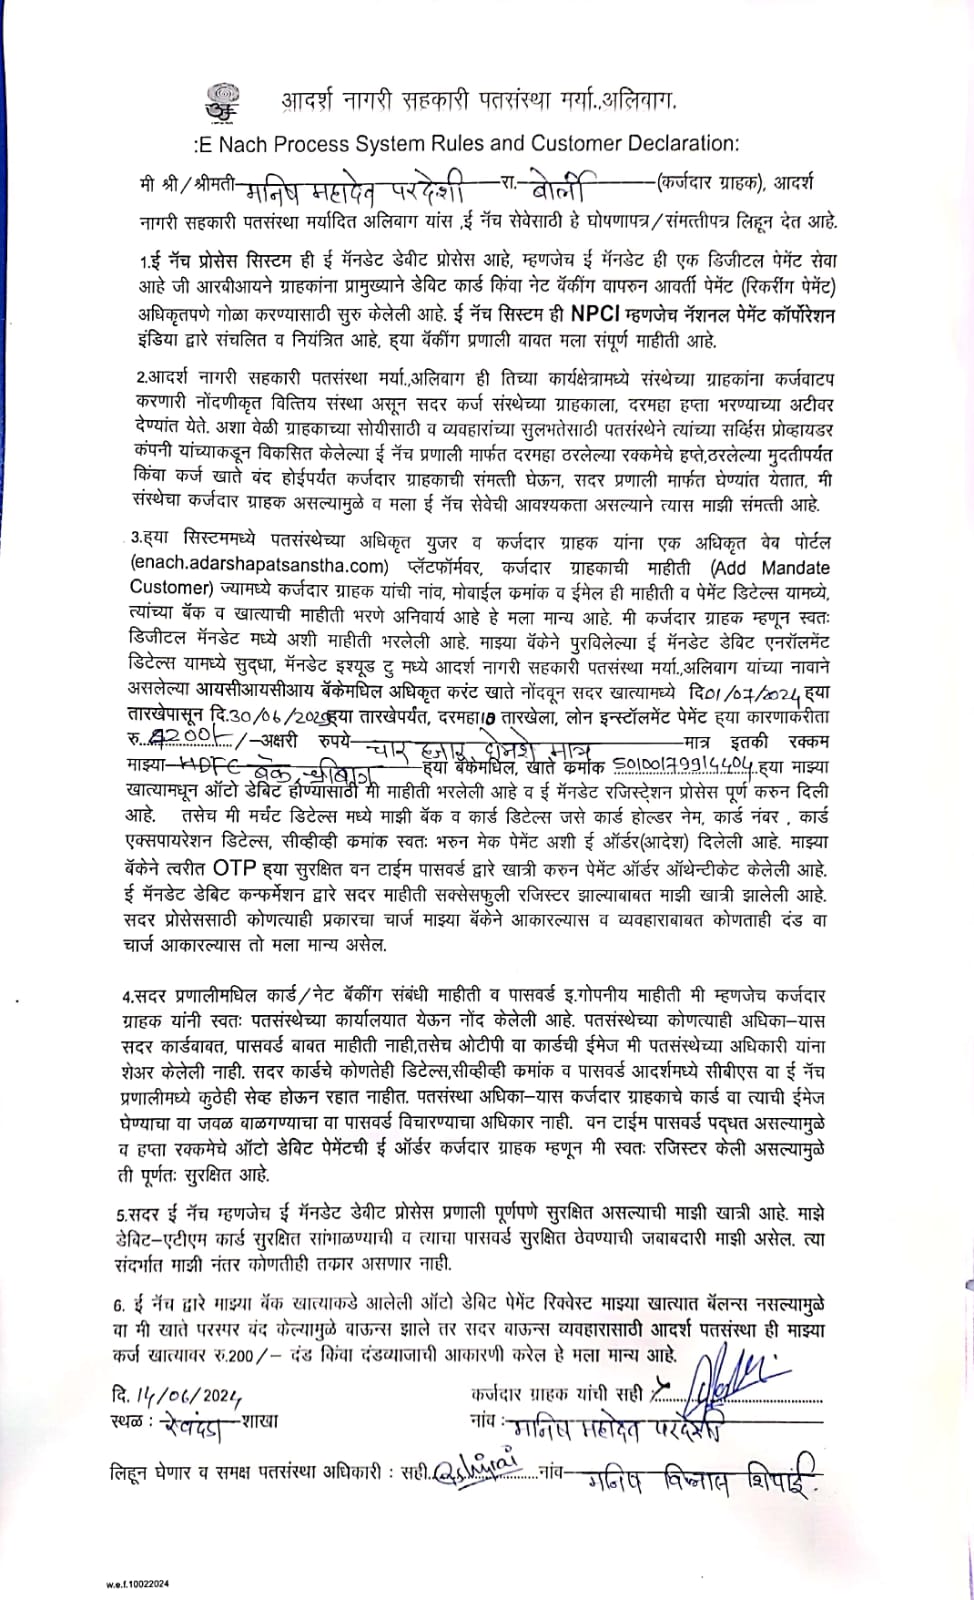 आदर्श नागरी सहकारी पतसंस्था मर्या.,अलिबाग.
:E Nach Process System Rules and Customer Declaration:
मी श्री/श्रीमती मनिष महादेव परदेशी रा. बोर्ली (कर्जदार ग्राहक), आदर्श
नागरी सहकारी पतसंस्था मर्यादित अलिबाग यांस ,ई नॅच सेवेसाठी हे घोषणापत्र/संमत्तीपत्र लिहून देत आहे.
1.ई नॅच प्रोसेस सिस्टिम ही ई मॅनडेट डेबीट प्रोसेस आहे, म्हणजेच ई मॅनडेट ही एक डिजीटल पेमेंट सेवा
आहे जी आरबीआयने ग्राहकांना प्रामुख्याने डेबिट कार्ड किंवा नेट बॅकींग वापरुन आवर्ती पेमेंट (रिकरींग पेमेंट)
अधिकृतपणे गोळा करण्यासाठी सुरु केलेली आहे. ई नॅच सिस्टिम ही NPCI म्हणजेच नॅशनल पेमेंट कॉर्पोरेशन
इंडिया द्वारे संचलित व नियंत्रित आहे, ह्या बॅकींग प्रणाली बाबत मला संपूर्ण माहीती आहे.
2.आदर्श नागरी सहकारी पतसंस्था मर्या.,अलिबाग ही तिच्या कार्यक्षेत्रामध्ये संस्थेच्या ग्राहकांना कर्जवाटप
करणारी नोंदणीकृत वित्तिय संस्था असून सदर कर्ज संस्थेच्या ग्राहकाला, दरमहा हप्ता भरण्याच्या अटीवर
देण्यांत येते. अशा वेळी ग्राहकाच्या सोयीसाठी व व्यवहारांच्या सुलभतेसाठी पतसंस्थेने त्यांच्या सर्व्हिस प्रोव्हायडर
कंपनी यांच्याकडून विकसित केलेल्या ई नॅच प्रणाली मार्फत दरमहा ठरलेल्या रक्कमेचे हप्ते,ठरलेल्या मुदतीपर्यंत
किंवा कर्ज खाते बंद होईपर्यंत कर्जदार ग्राहकाची संमत्ती घेऊन, सदर प्रणाली मार्फत घेण्यांत येतात, मी
संस्थेचा कर्जदार ग्राहक असल्यामुळे व मला ई नॅच सेवेची आवश्यकता असल्याने त्यास माझी संमत्ती आहे.
3.ह्या सिस्टिममध्ये पतसंस्थेच्या अधिकृत युजर व कर्जदार ग्राहक यांना एक अधिकृत वेब पोर्टल
(enach.adarshapatsanstha.com) प्लॅटफॉर्मवर, कर्जदार ग्राहकाची माहीती (Add Mandate
Customer) ज्यामध्ये कर्जदार ग्राहक यांची नांव, मोबाईल क्रमांक व ईमेल ही माहीती व पेमेंट डिटेल्स यामध्ये,
त्यांच्या बॅक व खात्याची माहीती भरणे अनिवार्य आहे हे मला मान्य आहे. मी कर्जदार ग्राहक म्हणून स्वतः
डिजीटल मॅनडेट मध्ये अशी माहीती भरलेली आहे. माझ्या बॅकेने पुरविलेल्या ई मॅनडेट डेबिट एनरॉलमेंट
डिटेल्स यामध्ये सुद्धा, मॅनडेट इश्यूड टु मध्ये आदर्श नागरी सहकारी पतसंस्था मर्या.,अलिबाग यांच्या नावाने
असलेल्या आयसीआयसीआय बॅकेमधिल अधिकृत करंट खाते नोंदवून सदर खात्यामध्ये दि.01/07/2024 ह्या
तारखेपासून दि.30/06/2029 ह्या तारखेपर्यंत, दरमहा 10 तारखेला, लोन इन्स्टॉलमेंट पेमेंट ह्या कारणाकरीता
रु. 4200/-/-अक्षरी रुपये चार हजार दोनशे मात्र मात्र इतकी रक्कम
माझ्या HDFC बँक, श्रीबाग ह्या बॅकेमधिल, खाते क्रमांक 50100179914404 ह्या माझ्या
खात्यामधून ऑटो डेबिट होण्यासाठी मी माहीती भरलेली आहे व ई मॅनडेट रजिस्ट्रेशन प्रोसेस पूर्ण करुन दिली
आहे. तसेच मी मर्चंट डिटेल्स मध्ये माझी बॅक व कार्ड डिटेल्स जसे कार्ड होल्डर नेम, कार्ड नंबर , कार्ड
एक्सपायरेशन डिटेल्स, सीव्हीव्ही क्रमांक स्वतः भरुन मेक पेमेंट अशी ई ऑर्डर(आदेश) दिलेली आहे. माझ्या
बॅकेने त्वरीत OTP ह्या सुरक्षित वन टाईम पासवर्ड द्वारे खात्री करुन पेमेंट ऑर्डर ऑथेन्टीकेट केलेली आहे.
ई मॅनडेट डेबिट कन्फर्मेशन द्वारे सदर माहीती सक्सेसफुली रजिस्टर झाल्याबाबत माझी खात्री झालेली आहे.
सदर प्रोसेससाठी कोणत्याही प्रकारचा चार्ज माझ्या बॅकेने आकारल्यास व व्यवहाराबाबत कोणताही दंड वा
चार्ज आकारल्यास तो मला मान्य असेल.
4.सदर प्रणालीमधिल कार्ड/नेट बॅकींग संबंधी माहीती व पासवर्ड इ.गोपनीय माहीती मी म्हणजेच कर्जदार
ग्राहक यांनी स्वतः पतसंस्थेच्या कार्यालयात येऊन नोंद केलेली आहे. पतसंस्थेच्या कोणत्याही अधिका-यास
सदर कार्डबाबत, पासवर्ड बाबत माहीती नाही,तसेच ओटीपी वा कार्डची ईमेज मी पतसंस्थेच्या अधिकारी यांना
शेअर केलेली नाही. सदर कार्डचे कोणतेही डिटेल्स,सीव्हीव्ही क्रमांक व पासवर्ड आदर्शमध्ये सीबीएस वा ई नॅच
प्रणालीमध्ये कुठेही सेव्ह होऊन रहात नाहीत. पतसंस्था अधिका-यास कर्जदार ग्राहकाचे कार्ड वा त्याची ईमेज
घेण्याचा वा जवळ बाळगण्याचा वा पासवर्ड विचारण्याचा अधिकार नाही. वन टाईम पासवर्ड पद्धत असल्यामुळे
व हप्ता रक्कमेचे ऑटो डेबिट पेमेंटची ई ऑर्डर कर्जदार ग्राहक म्हणून मी स्वतः रजिस्टर केली असल्यामुळे
ती पूर्णतः सुरक्षित आहे.
5.सदर ई नॅच म्हणजेच ई मॅनडेट डेबीट प्रोसेस प्रणाली पूर्णपणे सुरक्षित असल्याची माझी खात्री आहे. माझे
डेबिट-एटीएम कार्ड सुरक्षित सांभाळण्याची व त्याचा पासवर्ड सुरक्षित ठेवण्याची जबाबदारी माझी असेल. त्या
संदर्भात माझी नंतर कोणतीही तकार असणार नाही.
6. ई नॅच द्वारे माझ्या बॅक खात्याकडे आलेली ऑटो डेबिट पेमेंट रिक्वेस्ट माझ्या खात्यात बॅलन्स नसल्यामुळे
वा मी खाते परस्पर बंद केल्यामुळे बाऊन्स झाले तर सदर बाऊन्स व्यवहारासाठी आदर्श पतसंस्था ही माझ्या
कर्ज खात्यावर रु.200/- दंड किंवा दंडव्याजाची आकारणी करेल हे मला मान्य आहे.
दि. 14/06/2024 कर्जदार ग्राहक यांची सही :
स्थळ : रेवदंडा शाखा नांव : मनिष महादेव परदेशी
लिहून घेणार व समक्ष पतसंस्था अधिकारी : सही. नांव मनिष विलास शिपाई.
w.e.f.10022024